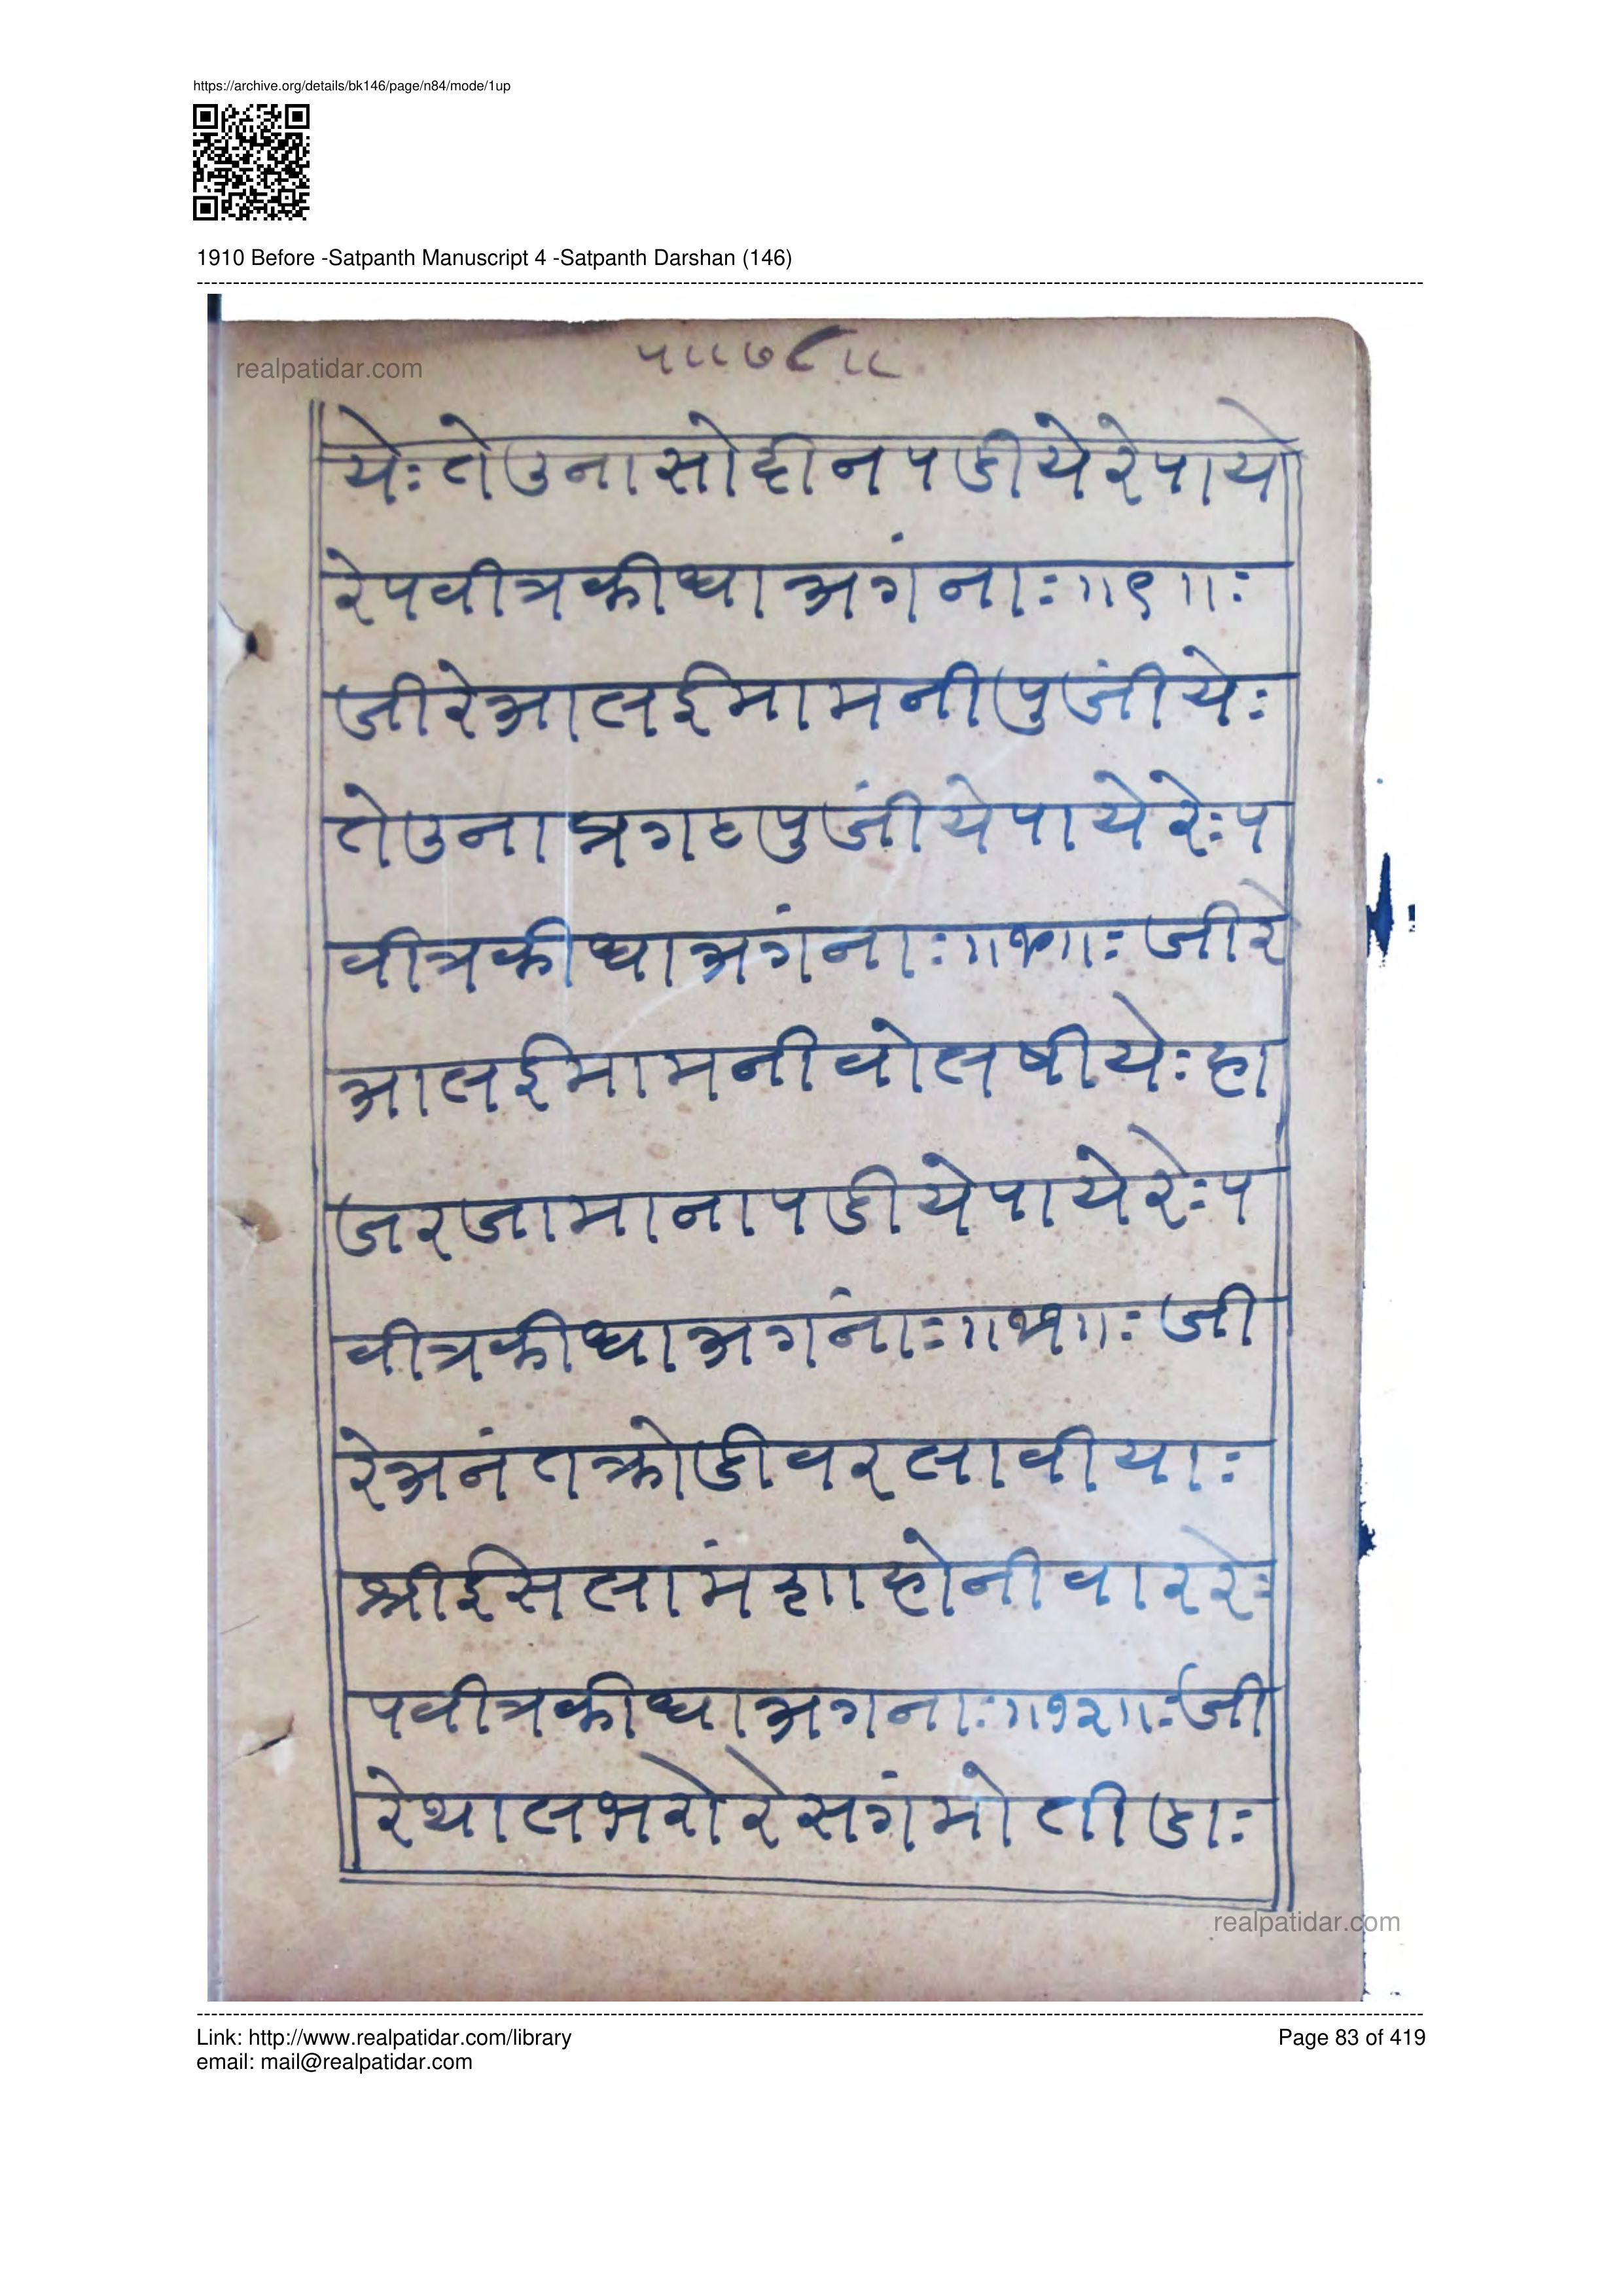 https://archive.org/details/bk146/page/n84/mode/1up
1910 Before -Satpanth Manuscript 4 -Satpanth Darshan (146)
realpatidar.com
५॥७८॥
येः तेउनासोहीनपडीयेरेपायो
रेपवीत्रकीधाअगंनाः॥९॥ः
जीरेआलईमामनीपुजींयेः
तेउनाप्रगटपुजींयेपायेरेःप
वीत्रकीधाअगंनाः॥१०॥ः जीरे
आलईमामनीवोलषीयेःहा
जरजामानापडीयेपायेरेःप
वीत्रकीधाअगंनाः॥११॥ः जी
रेअनंतक्रोडीवरलावीयाः
श्रीईसलामंशाहोनीवाररेः
पवीत्रकीधाअगनाः॥१२॥ःजी
रेथालभरोरेसगंमोतीडाः
realpatidar.com
Link: http://www.realpatidar.com/library
Page 83 of 419
email: mail@realpatidar.com